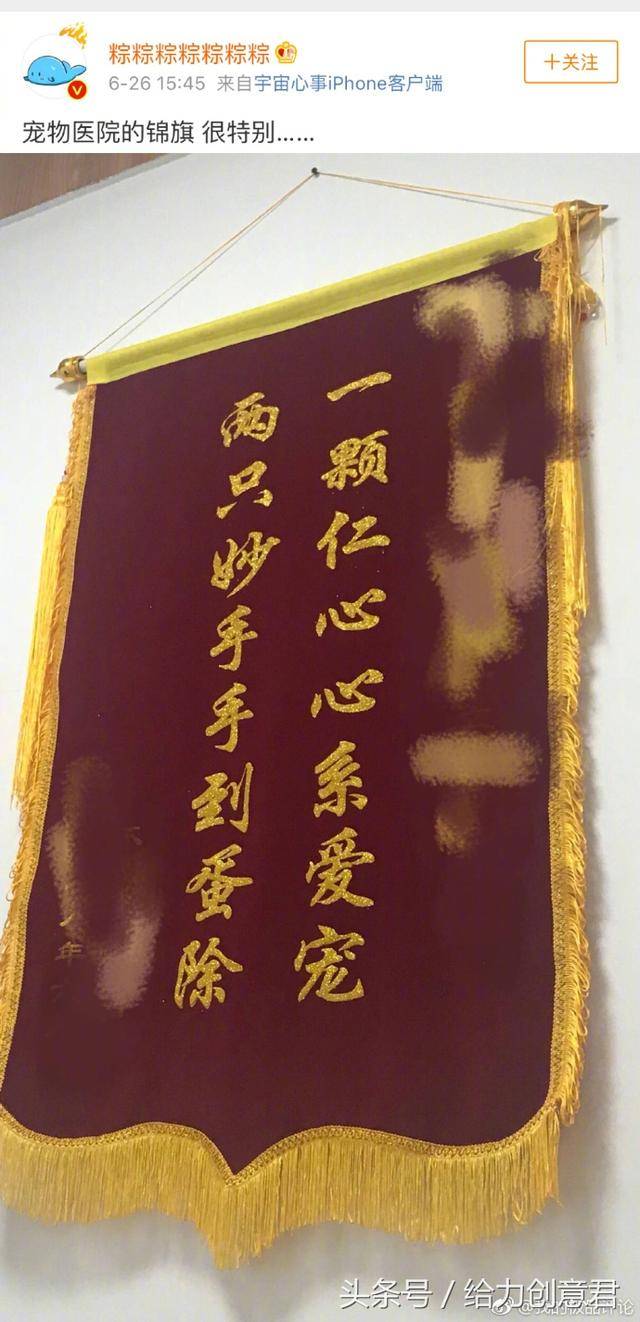 粽粽粽粽粽粽粽
+关注
6-26 15:45 来自宇宙心事iPhone客户端
宠物医院的锦旗 很特别……
一颗仁心心系爱宠
两只妙手手到蛋除
年
头条号/给力创意君